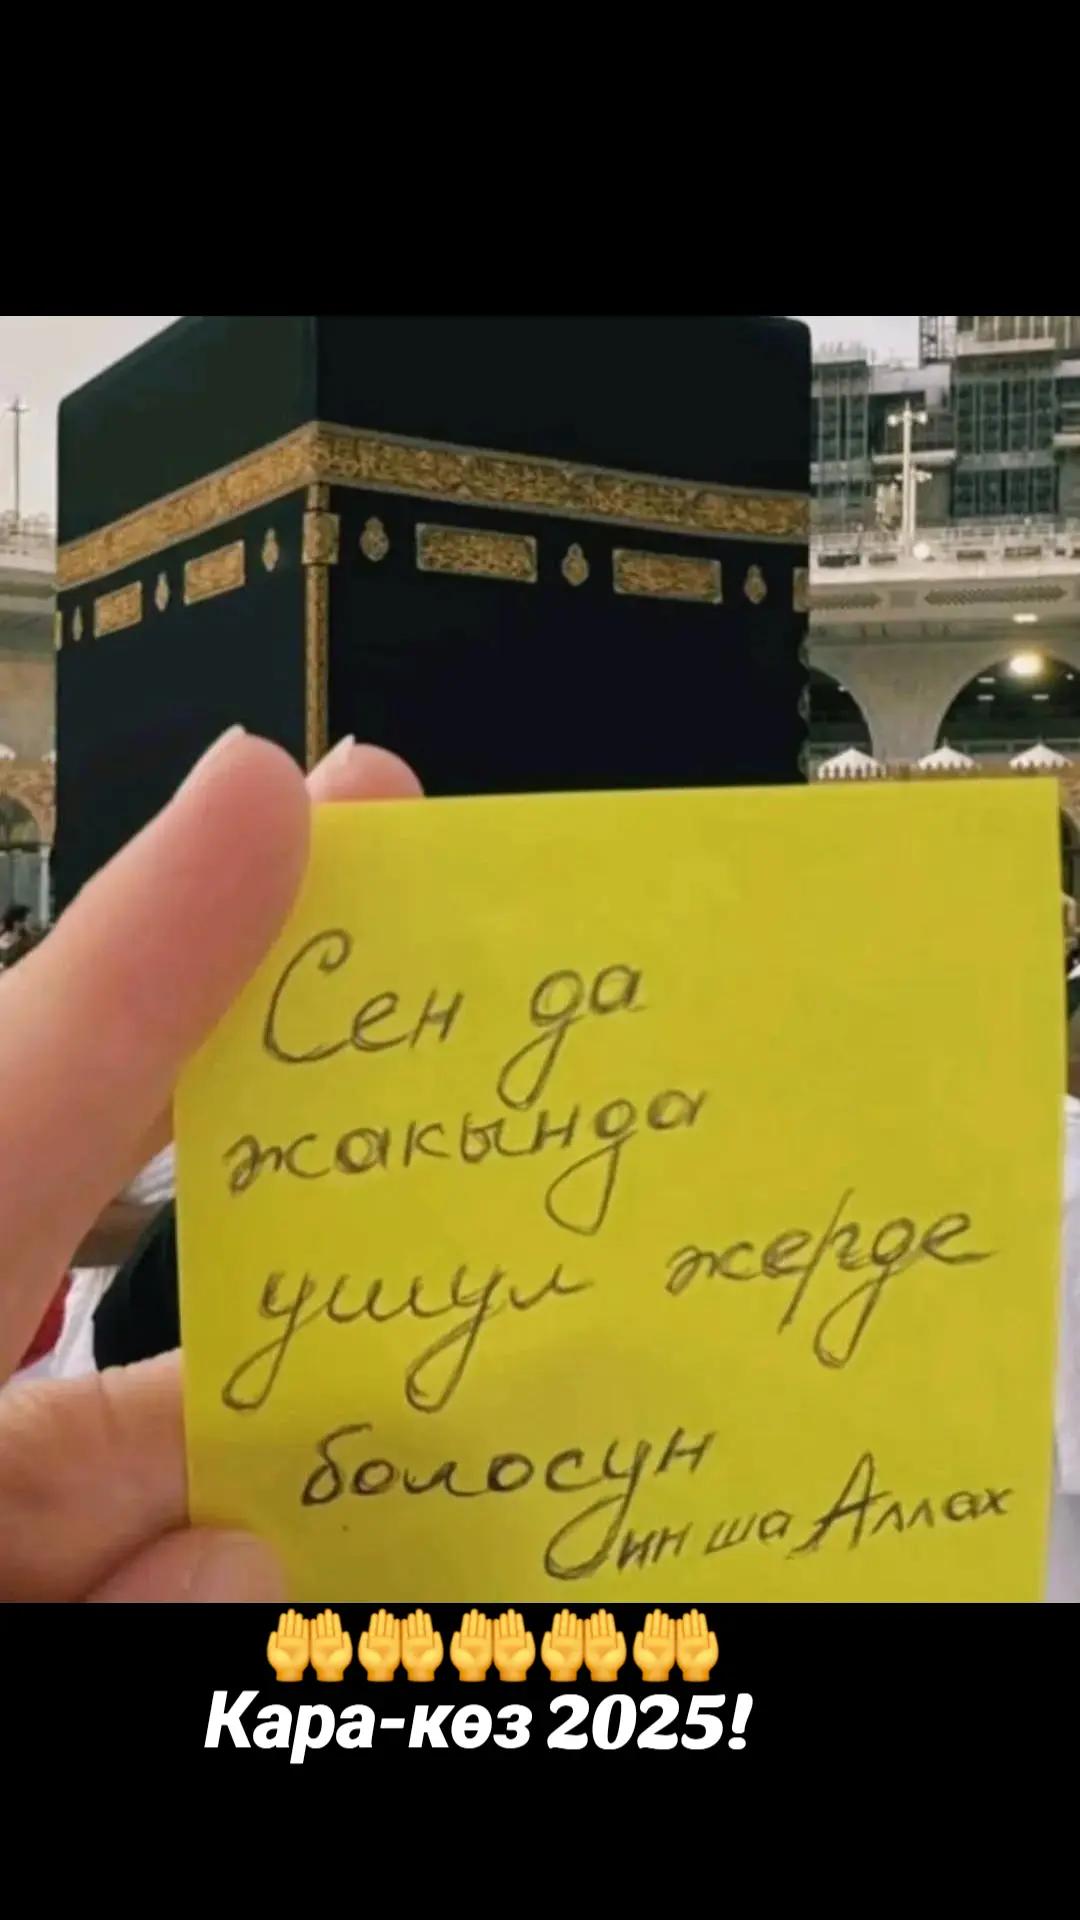 Сен да
жакында
ушул жерде
болосун
ин ша Аллах
🤲🤲🤲🤲🤲
Кара-көз 2025!